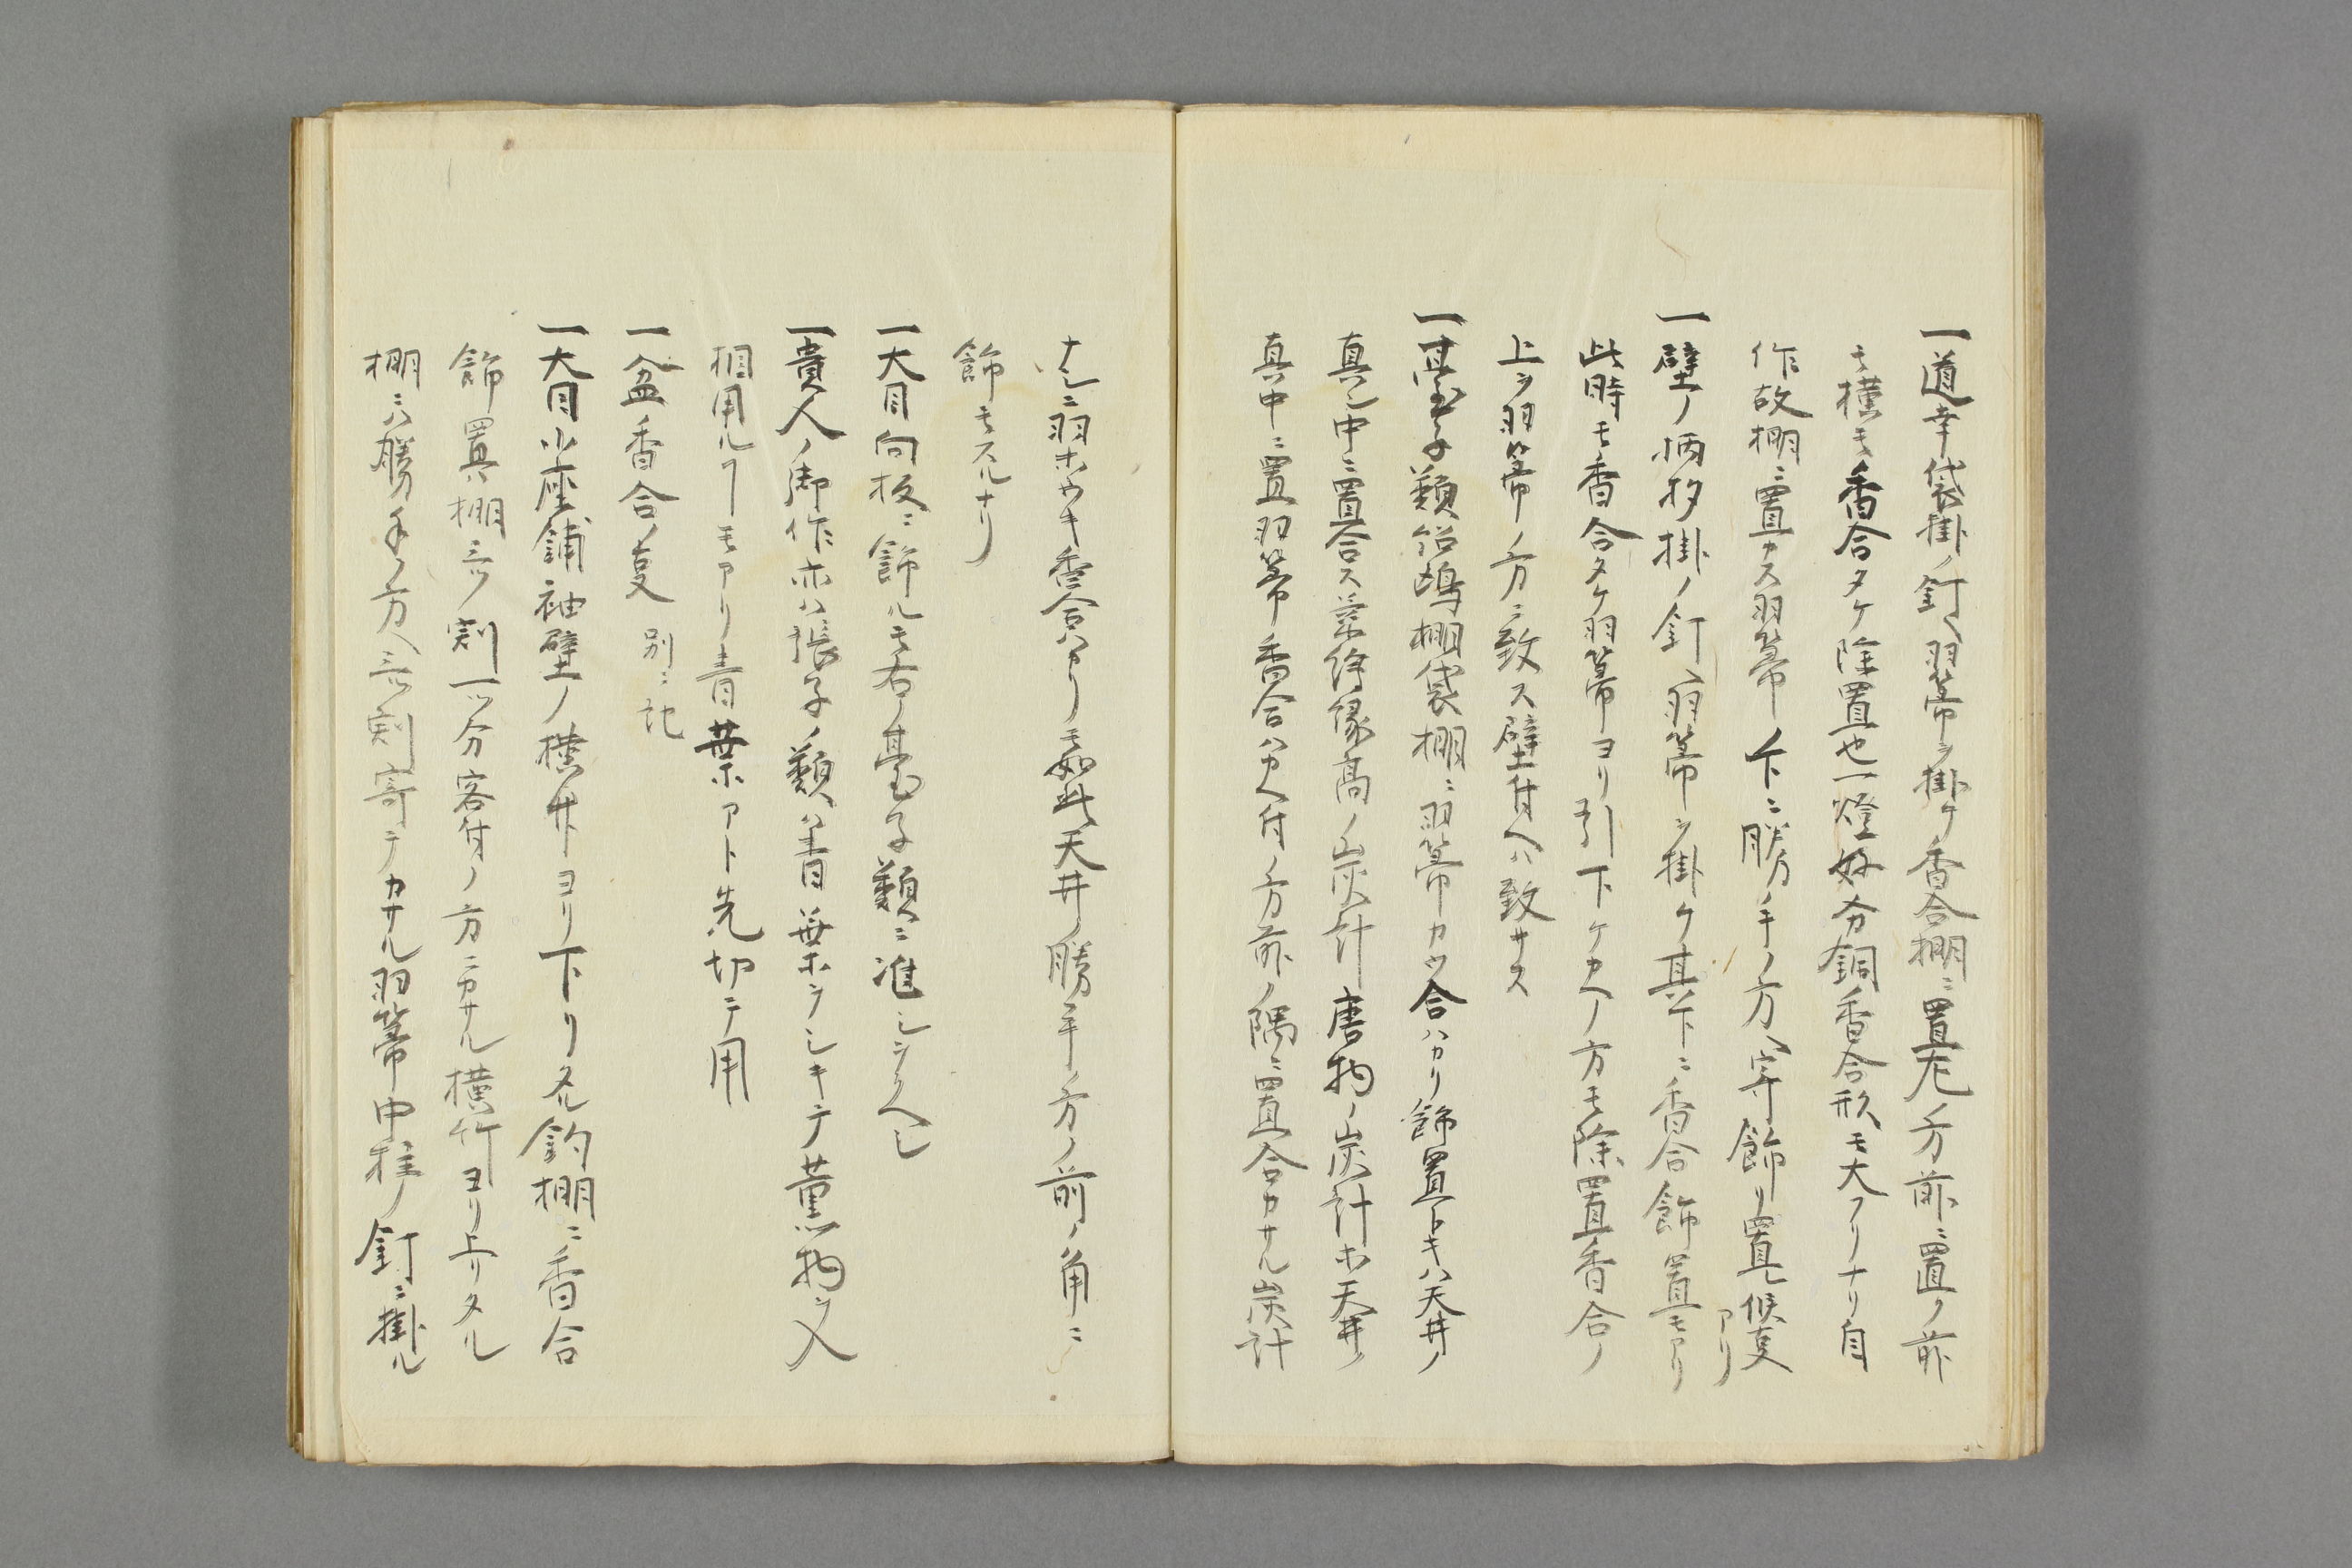 一道幸袋掛ノ釘ヘ羽箒ヲ掛ケ香合棚ニ置尤ノ方前ニ置ク前
モ横モ香合タケ除置也一燈好分銅香合形モ大フリナリ自
作故棚ニ置カス羽箒ノ下ニ勝手ノ方ヘ寄飾リ置候叓アリ
一壁ノ柄杓掛ノ釘ヘ羽箒ヲ掛ケ其下ニ香合飾置モアリ
此時モ香合タケ羽箒ヨリ引下ケカヘノ方モ除置香合ノ
上ヲ羽箒ノ方ニ致ス壁付ヘハ致サス
一臺子類紹鴎棚袋棚ニ羽箒カウ合ハカリ飾置トキハ天井ノ
真ン中ニ置合ス菜籠縁高ノ炭計唐物ノ炭計ホ天井ノ
真中ニ置羽箒香合ハカヘ付ノ方前ノ隅ニ置合カサル炭計
ナシニ羽ホウキ香合ハカリモ如此天井ノ勝手ノ方ノ前ノ角ニ
飾モスルナリ
一大目向板ニ飾ルモ右ノ臺子類ニ准シシルヘシ
一貴人ノ御作ホハ張子ノ類ハ青葉ホヲシキテ薫物ヲ入
相用ルヿモアリ青葉ホアト先切テ用
一盆香合ノ叓 別ニ記
一大目小座鋪袖壁ノ横竹ヨリ下リタル釣棚ニ香合
飾置棚三ツ割一ツ分客付ノ方ニカサル横竹ヨリ上リタル
棚ニハ勝手ノ方ヘ三ツ割寄テカサル羽箒中柱ノ釘ニ掛ル